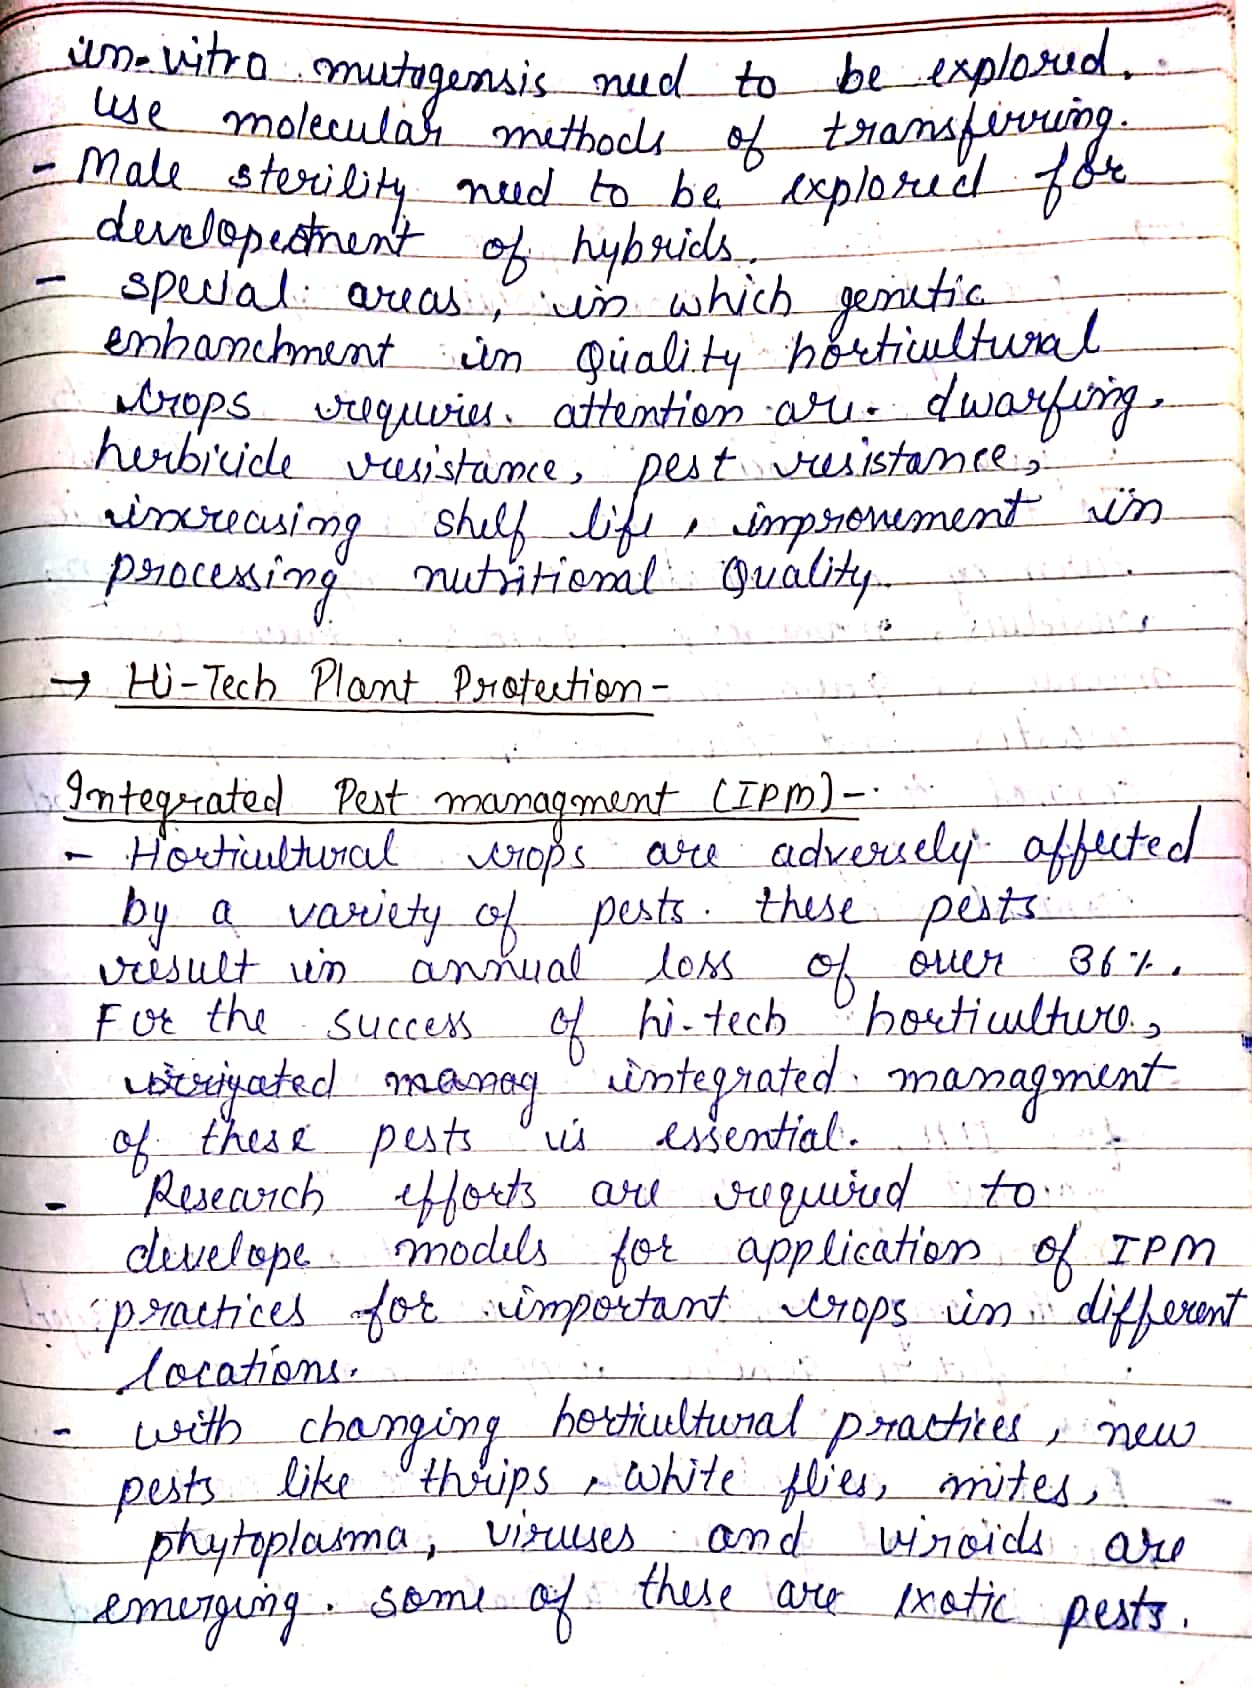 in-vitro mutagensis need to be explored.
use molecular methods of transferring.
- Male sterility need to be explored for
developement of hybrids.
- special areas, in which genetic
enhanchment in Quality horticultural
crops requries. attention are. dwarfing,
herbicide resistance, pest resistance,
increasing shelf life, improvement in
processing nutritional Quality.
→ Hi-Tech Plant Protection-
Integrated Pest managment (IPM)-
- Horticultural crops are adversely affected
by a variety of pests. these pests
result in annual loss of over 36%.
For the success of hi-tech horticulture,
irrigated manag integrated managment
of these pests is essential.
- Research efforts are required to
develope models for application of IPM
practices for important crops in different
locations.
- with changing horticultural practices, new
pests like thrips, white flies, mites,
phytoplasma, viruses and viroids are
emerging. some of these are exotic pests.